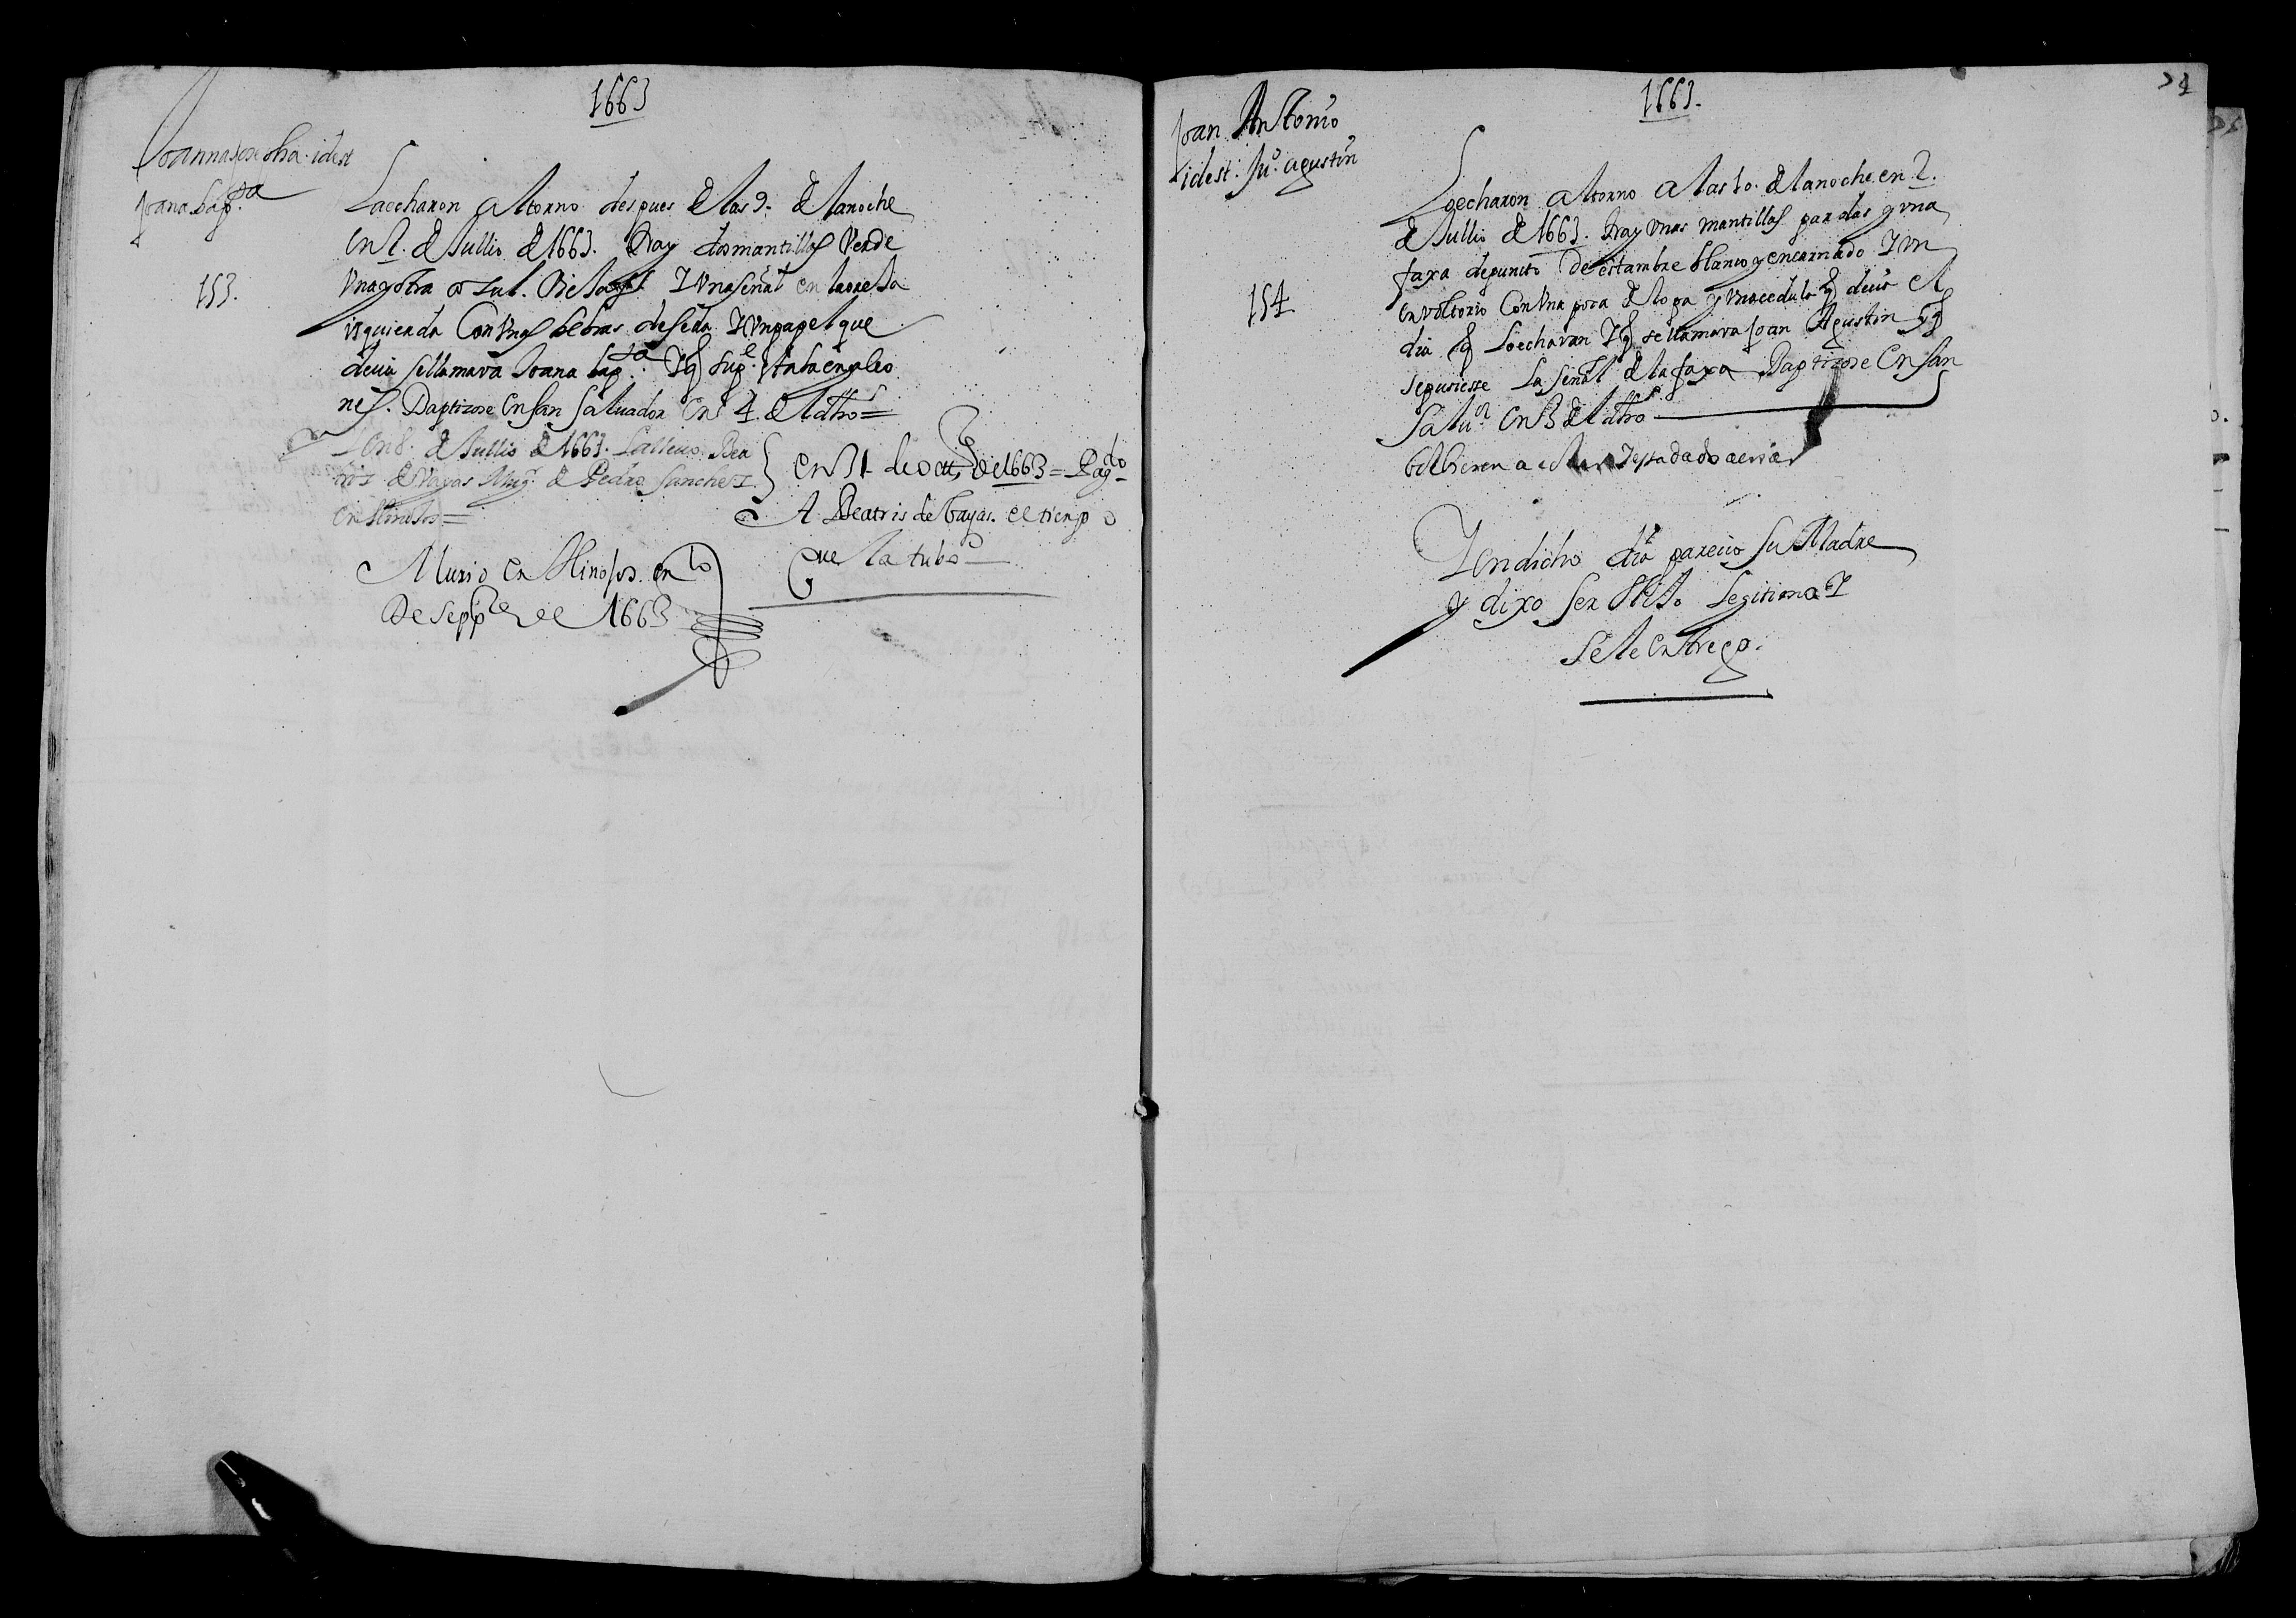 1663
Joanna Josepha. idest
Joana bap.ta
153.
La echaron al torno despues de las 9. de la noche
en 2. de Jullio de 1663. tray dos mantillas verde
una y otra
una señal en la oreja
isquierda con unas hebras de seda y un papel que
decia se llamava Joana bap.ta
nes. Baptizose en San Salvador en 4. de
en 8. de Jullio de 1663. la lleuo Bea
triz de Vayas mug.r de Pedro Sanchez
en Hinojos =
en 31 de oct.e de 1663 = Pag.do
A Beatris de Bayas. el tienpo
que la tubo
Murio en Hinojos. en 10
De sepp.e de 1663
1663.
Joan Antonio
idest: Ju.o Agustin
154
Lo echaron al torno a las 10. de la noche en 2.
de Jullio de 1663. tray unas mantillas pardas y una
faxa de punto de estambre blanco y encarnado y un
envoltorio con una poca de ropa y una cedula q decia el
dia q lo echavan y q se llamava Joan Agustin y q
se pusiesse la señal de la faxa Baptizose en San
Salu.or en 3 de
bolbieron a
Y en dicho dia parecio su Madre
y dixo ser Hijo legitimo y
se le entrego.